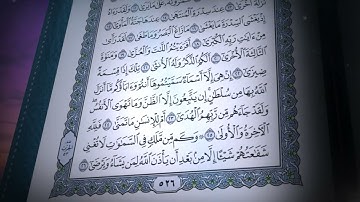 نَزْلَةً أُخْرَىٰ ١٣ عِندَ سِدْرَةِ ٱلْمُنتَهَىٰ ١٤ عِندَهَا جَنَّةُ ٱلْمَأْوَىٰٓ ١٥
إِذْ يَغْشَى ٱلسِّدْرَةَ مَا يَغْشَىٰ ١٦ مَا زَاغَ ٱلْبَصَرُ وَمَا طَغَىٰ ١٧ لَقَدْ رَأَىٰ
مِنْ ءَايَٰتِ رَبِّهِ ٱلْكُبْرَىٰٓ ١٨ أَفَرَءَيْتُمُ ٱللَّٰتَ وَٱلْعُزَّىٰ ١٩ وَمَنَوٰةَ
ٱلثَّالِثَةَ ٱلْأُخْرَىٰٓ ٢٠ أَلَكُمُ ٱلذَّكَرُ وَلَهُ ٱلْأُنثَىٰ ٢١ تِلْكَ إِذًا قِسْمَةٌ
ضِيزَىٰٓ ٢٢ إِنْ هِىَ إِلَّآ أَسْمَآءٌ سَمَّيْتُمُوهَآ أَنتُمْ وَءَابَآؤُكُم مَّآ أَنزَلَ
ٱللَّهُ بِهَا مِن سُلْطَٰنٍ إِن يَتَّبِعُونَ إِلَّا ٱلظَّنَّ وَمَا تَهْوَى ٱلْأَنفُسُ
وَلَقَدْ جَآءَهُم مِّن رَّبِّهِمُ ٱلْهُدَىٰٓ ٢٣ أَمْ لِلْإِنسَٰنِ مَا تَمَنَّىٰ ٢٤ فَلِلَّهِ
ٱلْءَاخِرَةُ وَٱلْأُولَىٰ ٢٥ وَكَم مِّن مَّلَكٍ فِى ٱلسَّمَٰوَٰتِ لَا تُغْنِى
شَفَٰعَتُهُمْ شَيْـًٔا إِلَّا مِنۢ بَعْدِ أَن يَأْذَنَ ٱللَّهُ لِمَن يَشَآءُ وَيَرْضَىٰٓ ٢٦
٥٢٦